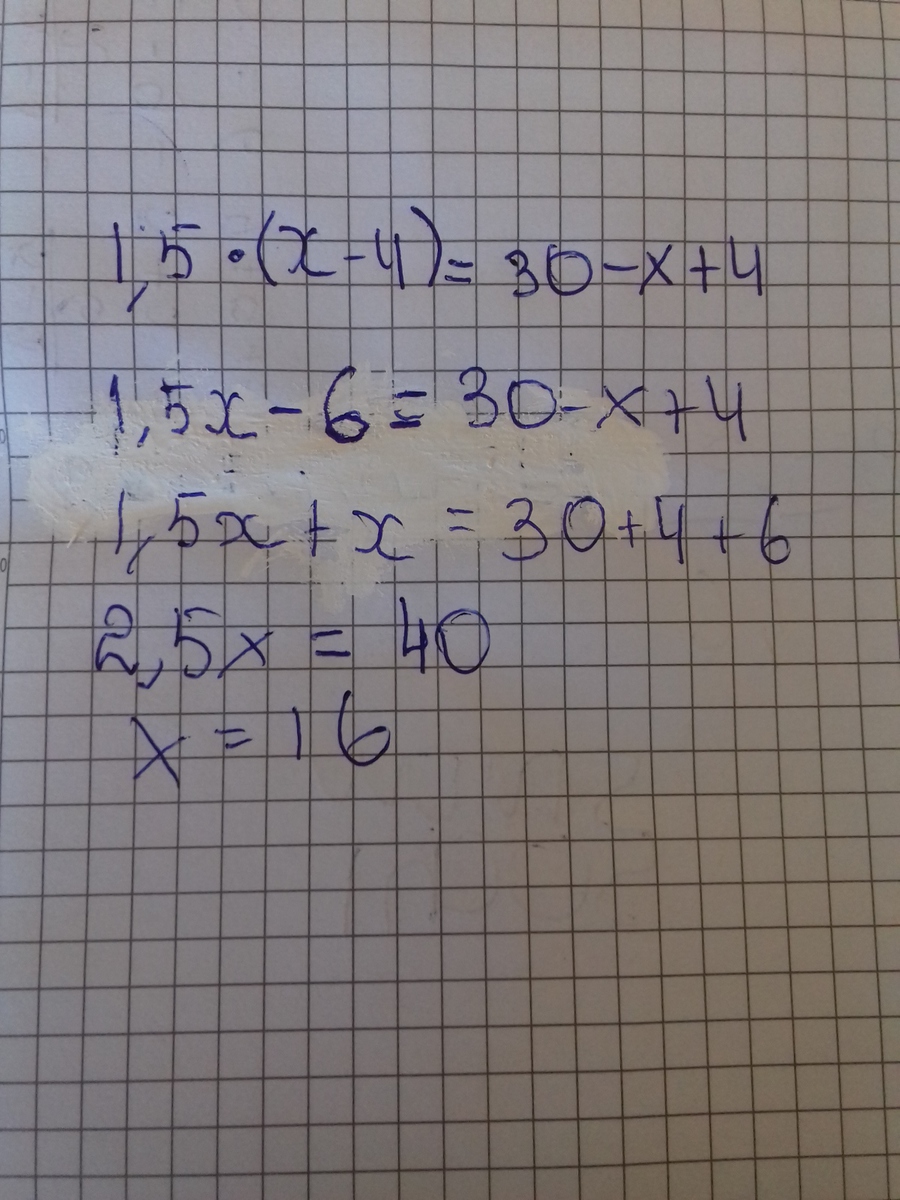 1,5 · (x - 4) = 30 - x + 4
1,5x - 6 = 30 - x + 4
1,5x + x = 30 + 4 + 6
2,5x = 40
x = 16